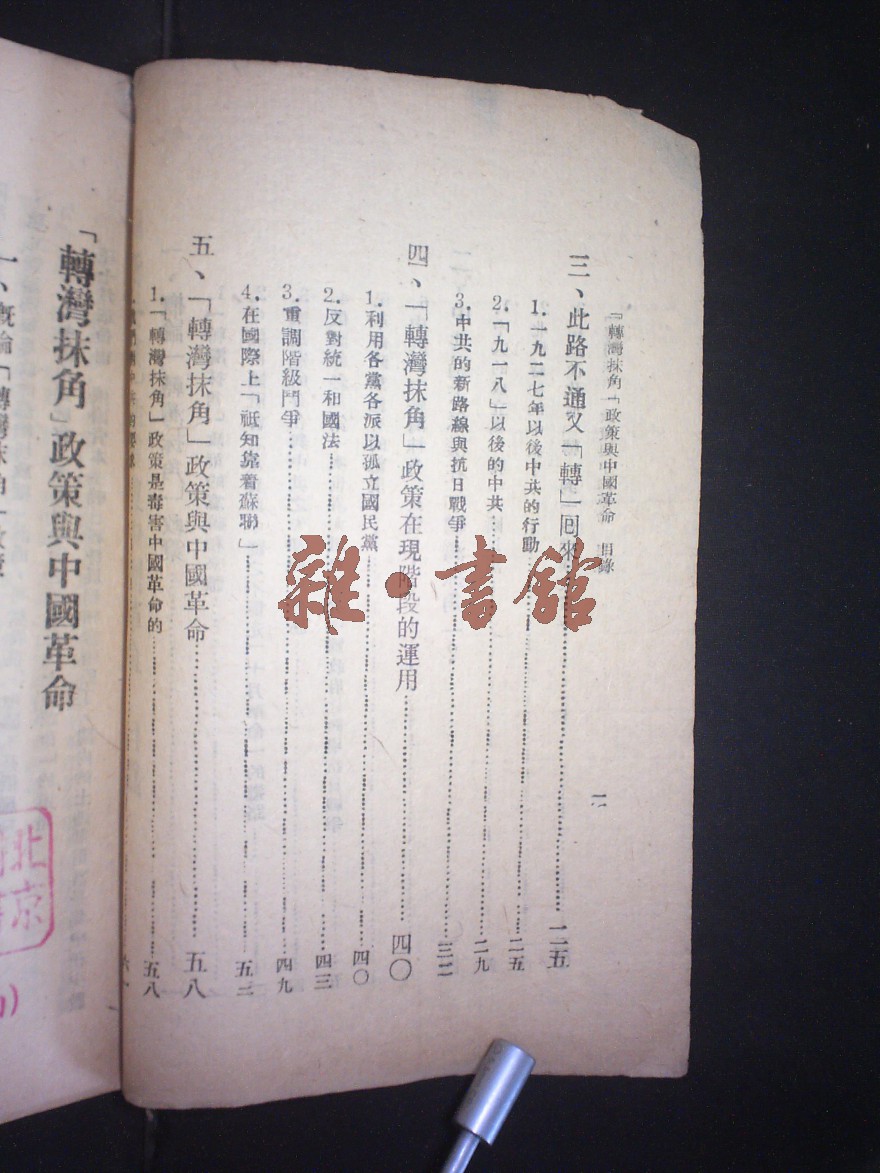 「轉灣抹角「政策與中國革命　目錄
三、此路不通又「轉」囘來……二五
1.一九二七年以後中共的行動……二五
2.「九一八」以後的中共……二九
3.中共的新路線與抗日戰爭……三二
四、「轉灣抹角」政策在現階段的運用……四〇
1.利用各黨各派以孤立國民黨……四〇
2.反對統一和國法……四三
3.重調階級鬥爭……四九
4.在國際上「祇知靠着蘇聯」……五二
五、「轉灣抹角」政策與中國革命……五八
1.「轉灣抹角」政策是毒害中國革命的……五八
六一
「轉灣抹角」政策與中國革命
一、概論「轉灣抹角」政策
雜·書館
北京